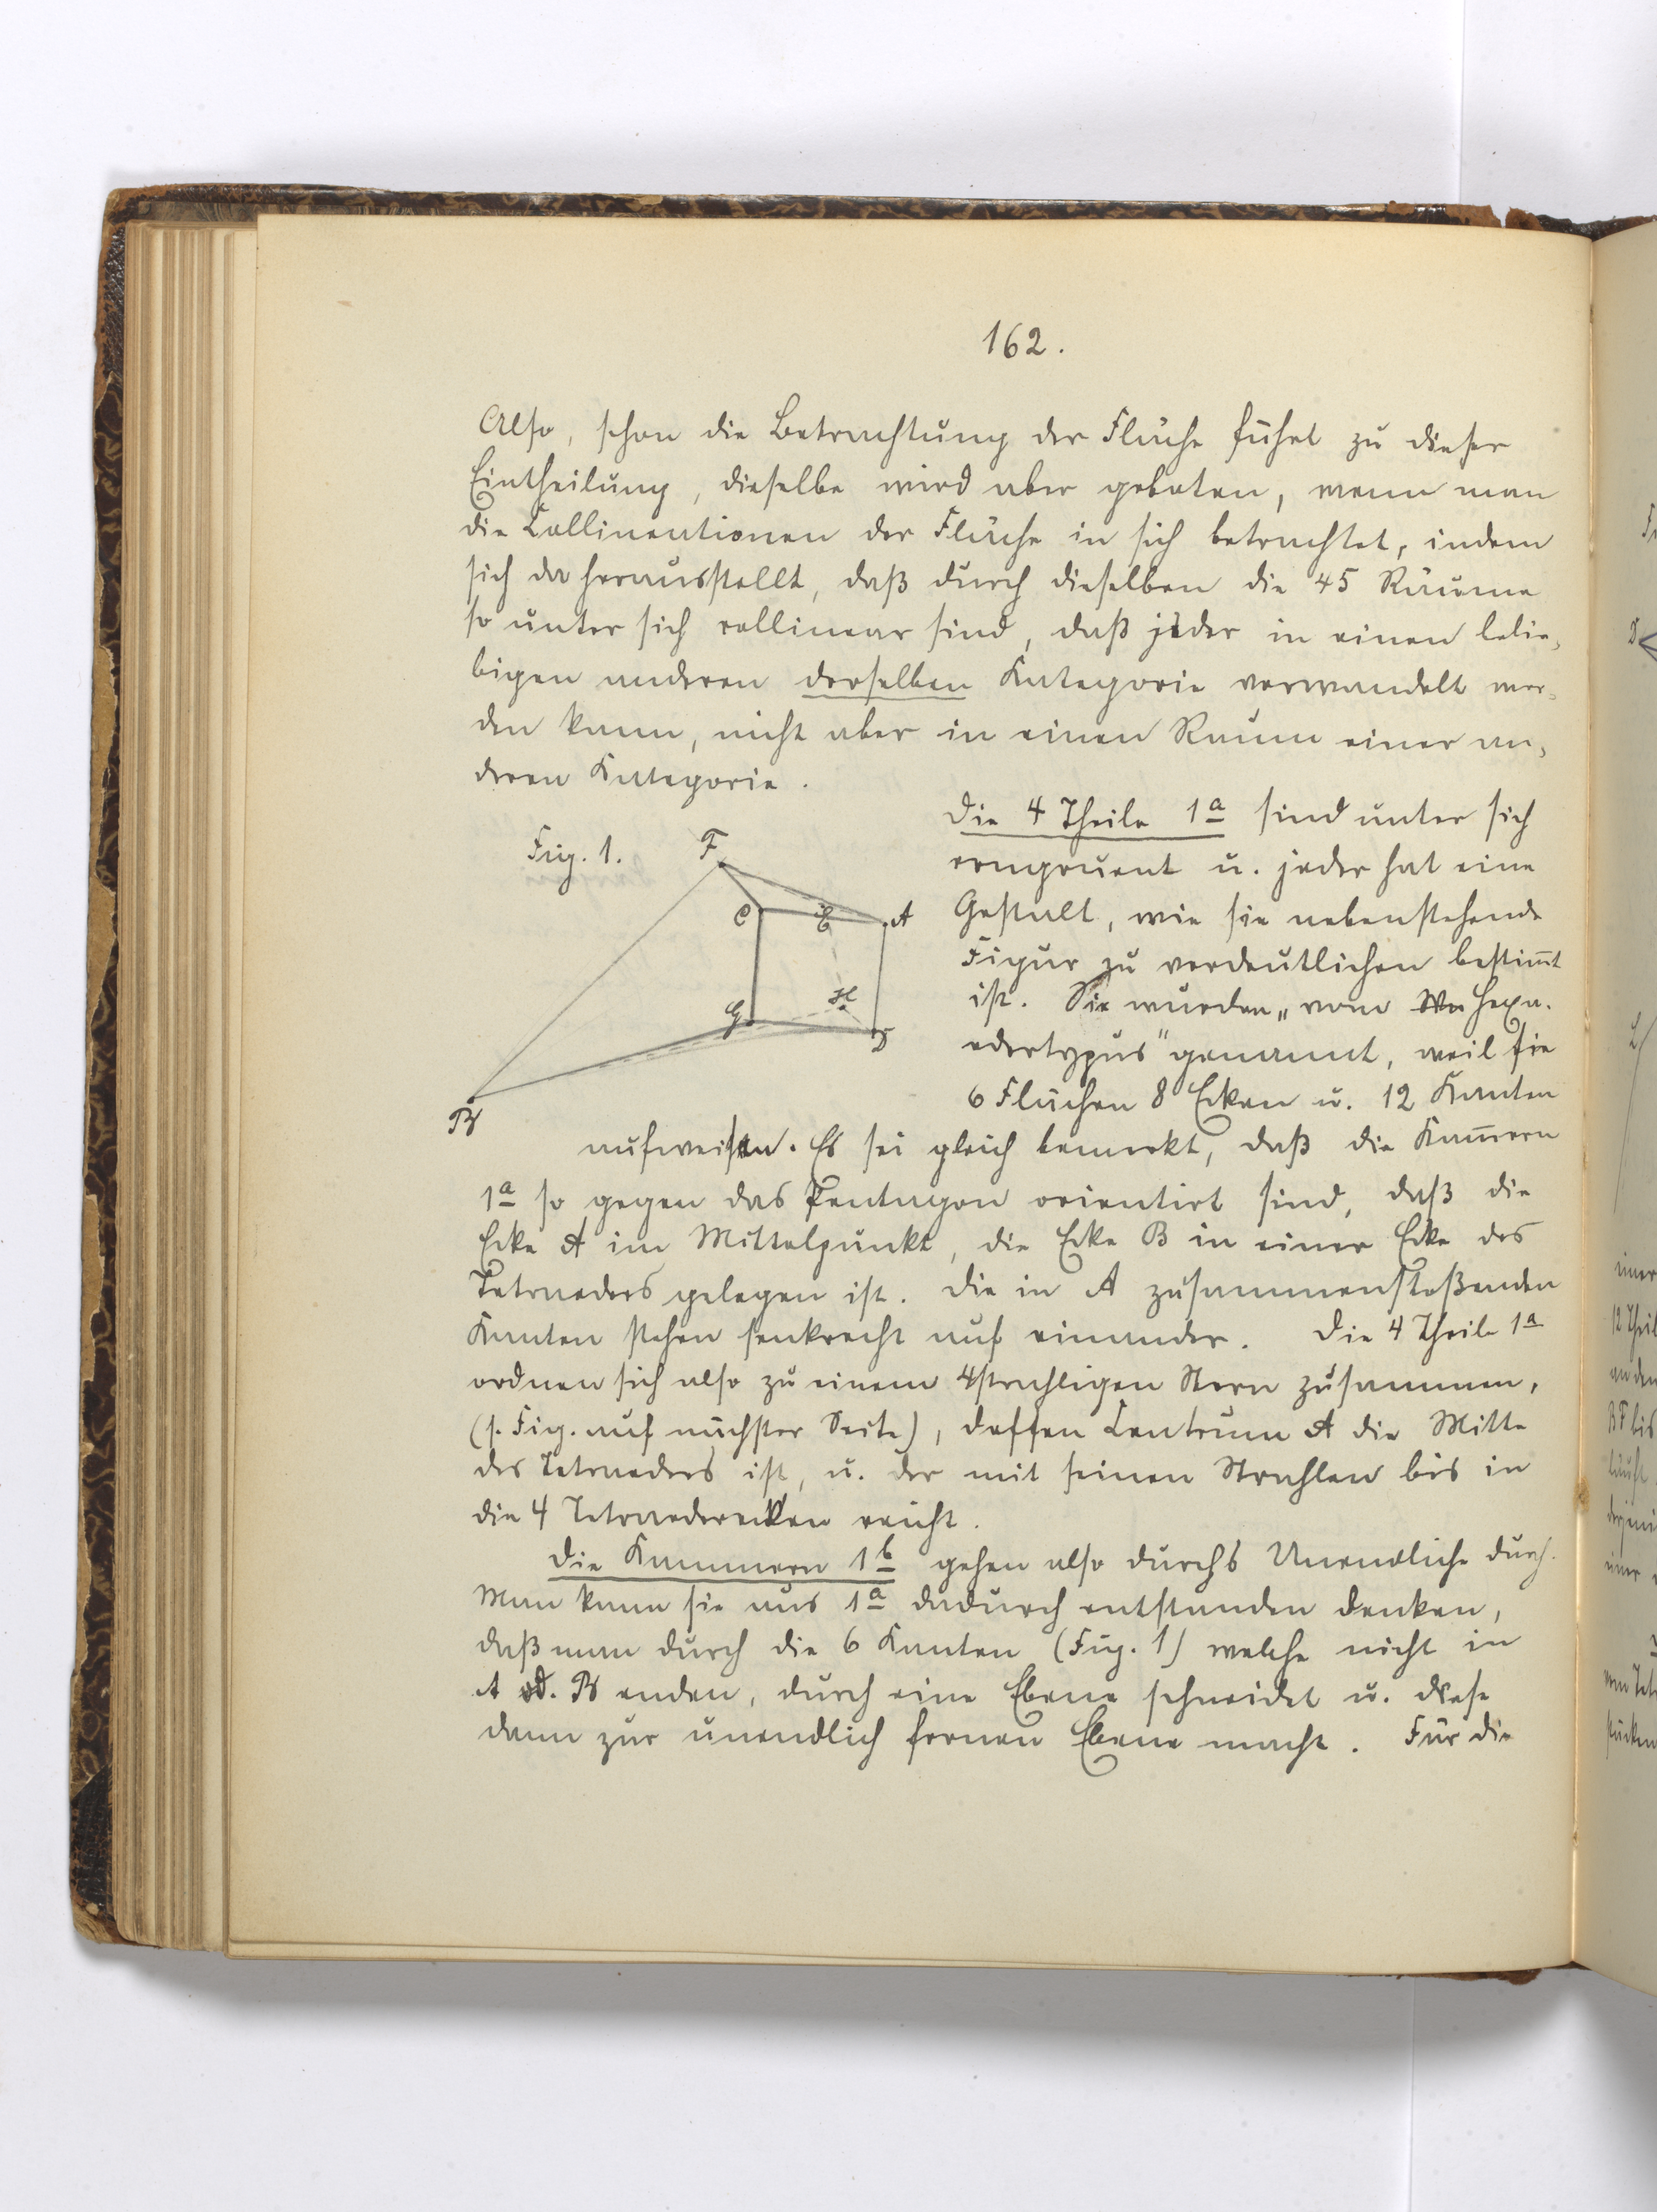 162.
Also, schon die Betrachtung der Fläche führt zu dieser
Eintheilung, dieselbe wird aber geboten, wenn man
die Collineationen der Fläche in sich betrachtet, indem
sich da herausstellt, daß durch dieselben die 45 Räume
so unter sich collinear sind, daß jeder in einen belie-
bigen anderen derselben Kategorie verwandelt wer-
den kann, nicht aber in einen Raum einer an-
deren Kategorie.
Die 4 Theile 1a sind unter sich
congruent u. jeder hat eine
Gestalt, wie sie nebenstehende
Figur zu verdeutlichen bestim̄t
ist. Sie wurden „vom Hexa-
edertypus" genannt, weil sie
6 Flächen 8 Ecken u. 12 Kanten
Fig. 1.
F
C
E
A
G
H
D
B
aufweisen. Es sei gleich bemerkt, daß die Kam̄ern
1a so gegen das Pentagon orientirt sind, daß die
Ecke A im Mittelpunkt, die Ecke B in einer Ecke des
Tetraeders gelegen ist. Die in A zusammenstoßenden
Kanten stehen senkrecht auf einander. Die 4 Theile 1a
ordnen sich also zu einem 4strahligen Stern zusammen,
(s. Fig. auf nächster Seite), dessen Centrum A die Mitte
des Tetraeders ist, u. der mit seinen Strahlen bis in
die 4 Tetraederecken reicht.
Die Kammern 1b gehen also durchs Unendliche durch.
Man kann sie aus 1a dadurch entstanden denken,
daß man durch die 6 Kanten (Fig. 1) welche nicht in
A od. B enden, durch eine Ebene schneidet u. diese
dann zur unendlich fernen Ebene macht. Für die